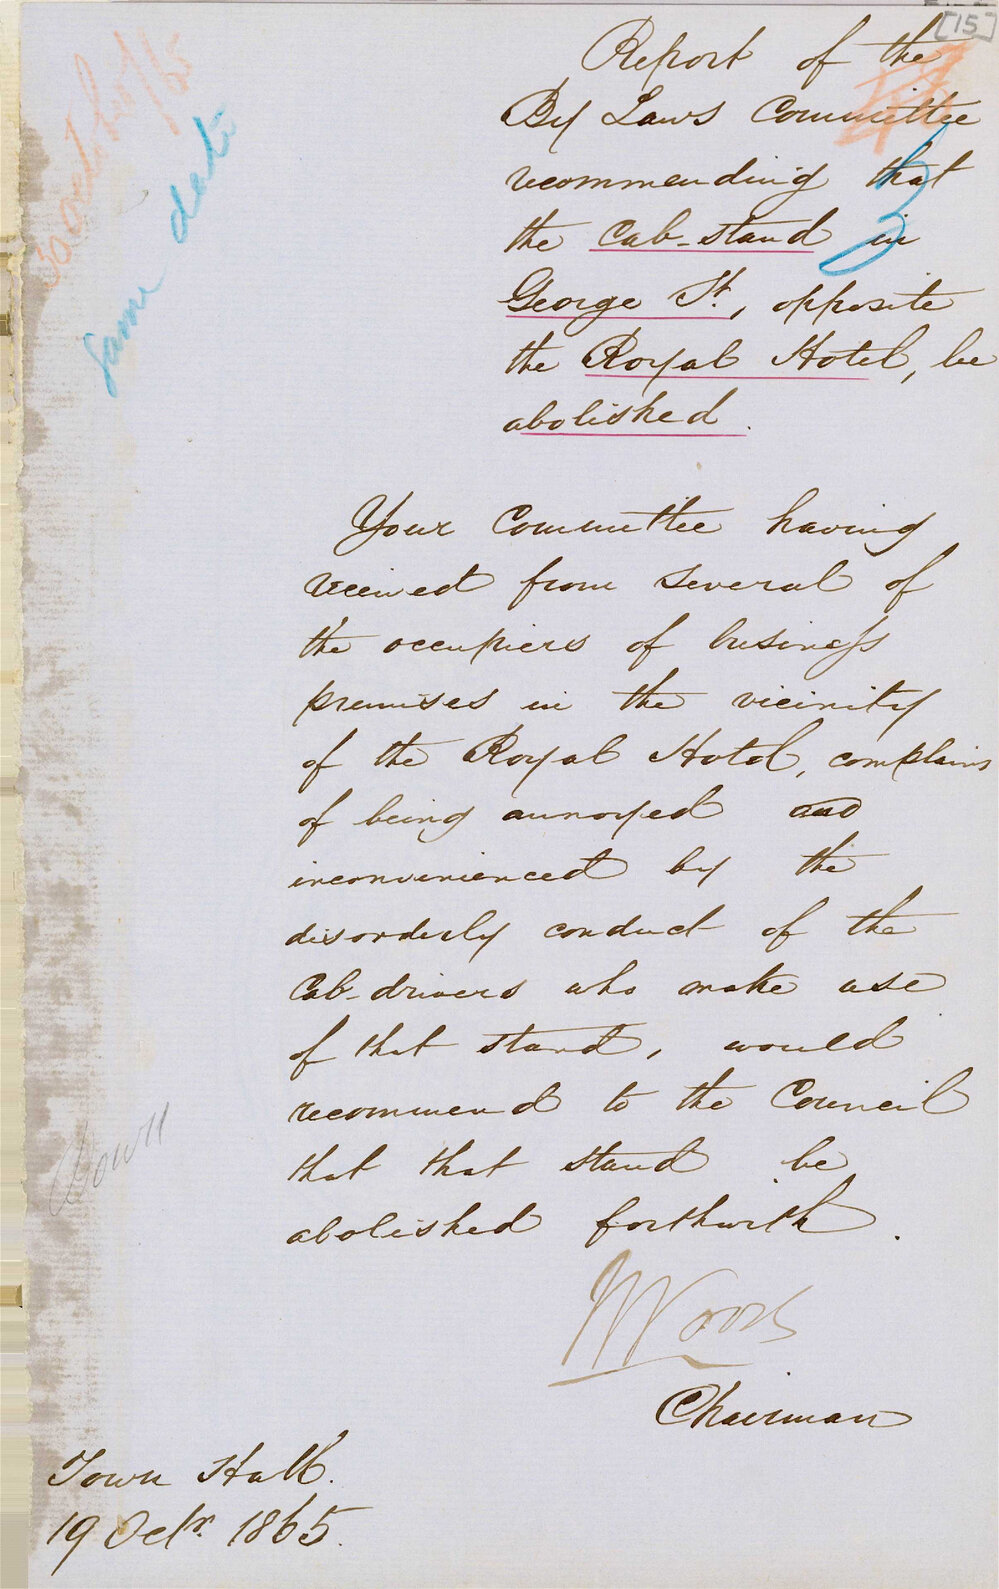 [15]
Report of the
By Laws Committee
recommending that
the Cab-stand in
George St., opposite
the Royal Hotel, be
abolished.
30 October/65
Same date
Your Committee having
received from several of
the occupiers of business
premises in the vicinity
of the Royal Hotel, complains
of being annoyed and
inconvenienced by the
disorderly conduct of the
Cab-drivers who make use
of that stand, would
recommend to the Council
that that stand be
abolished forthwith.
Woods
Chairman
Town Hall.
19 Octr. 1865.